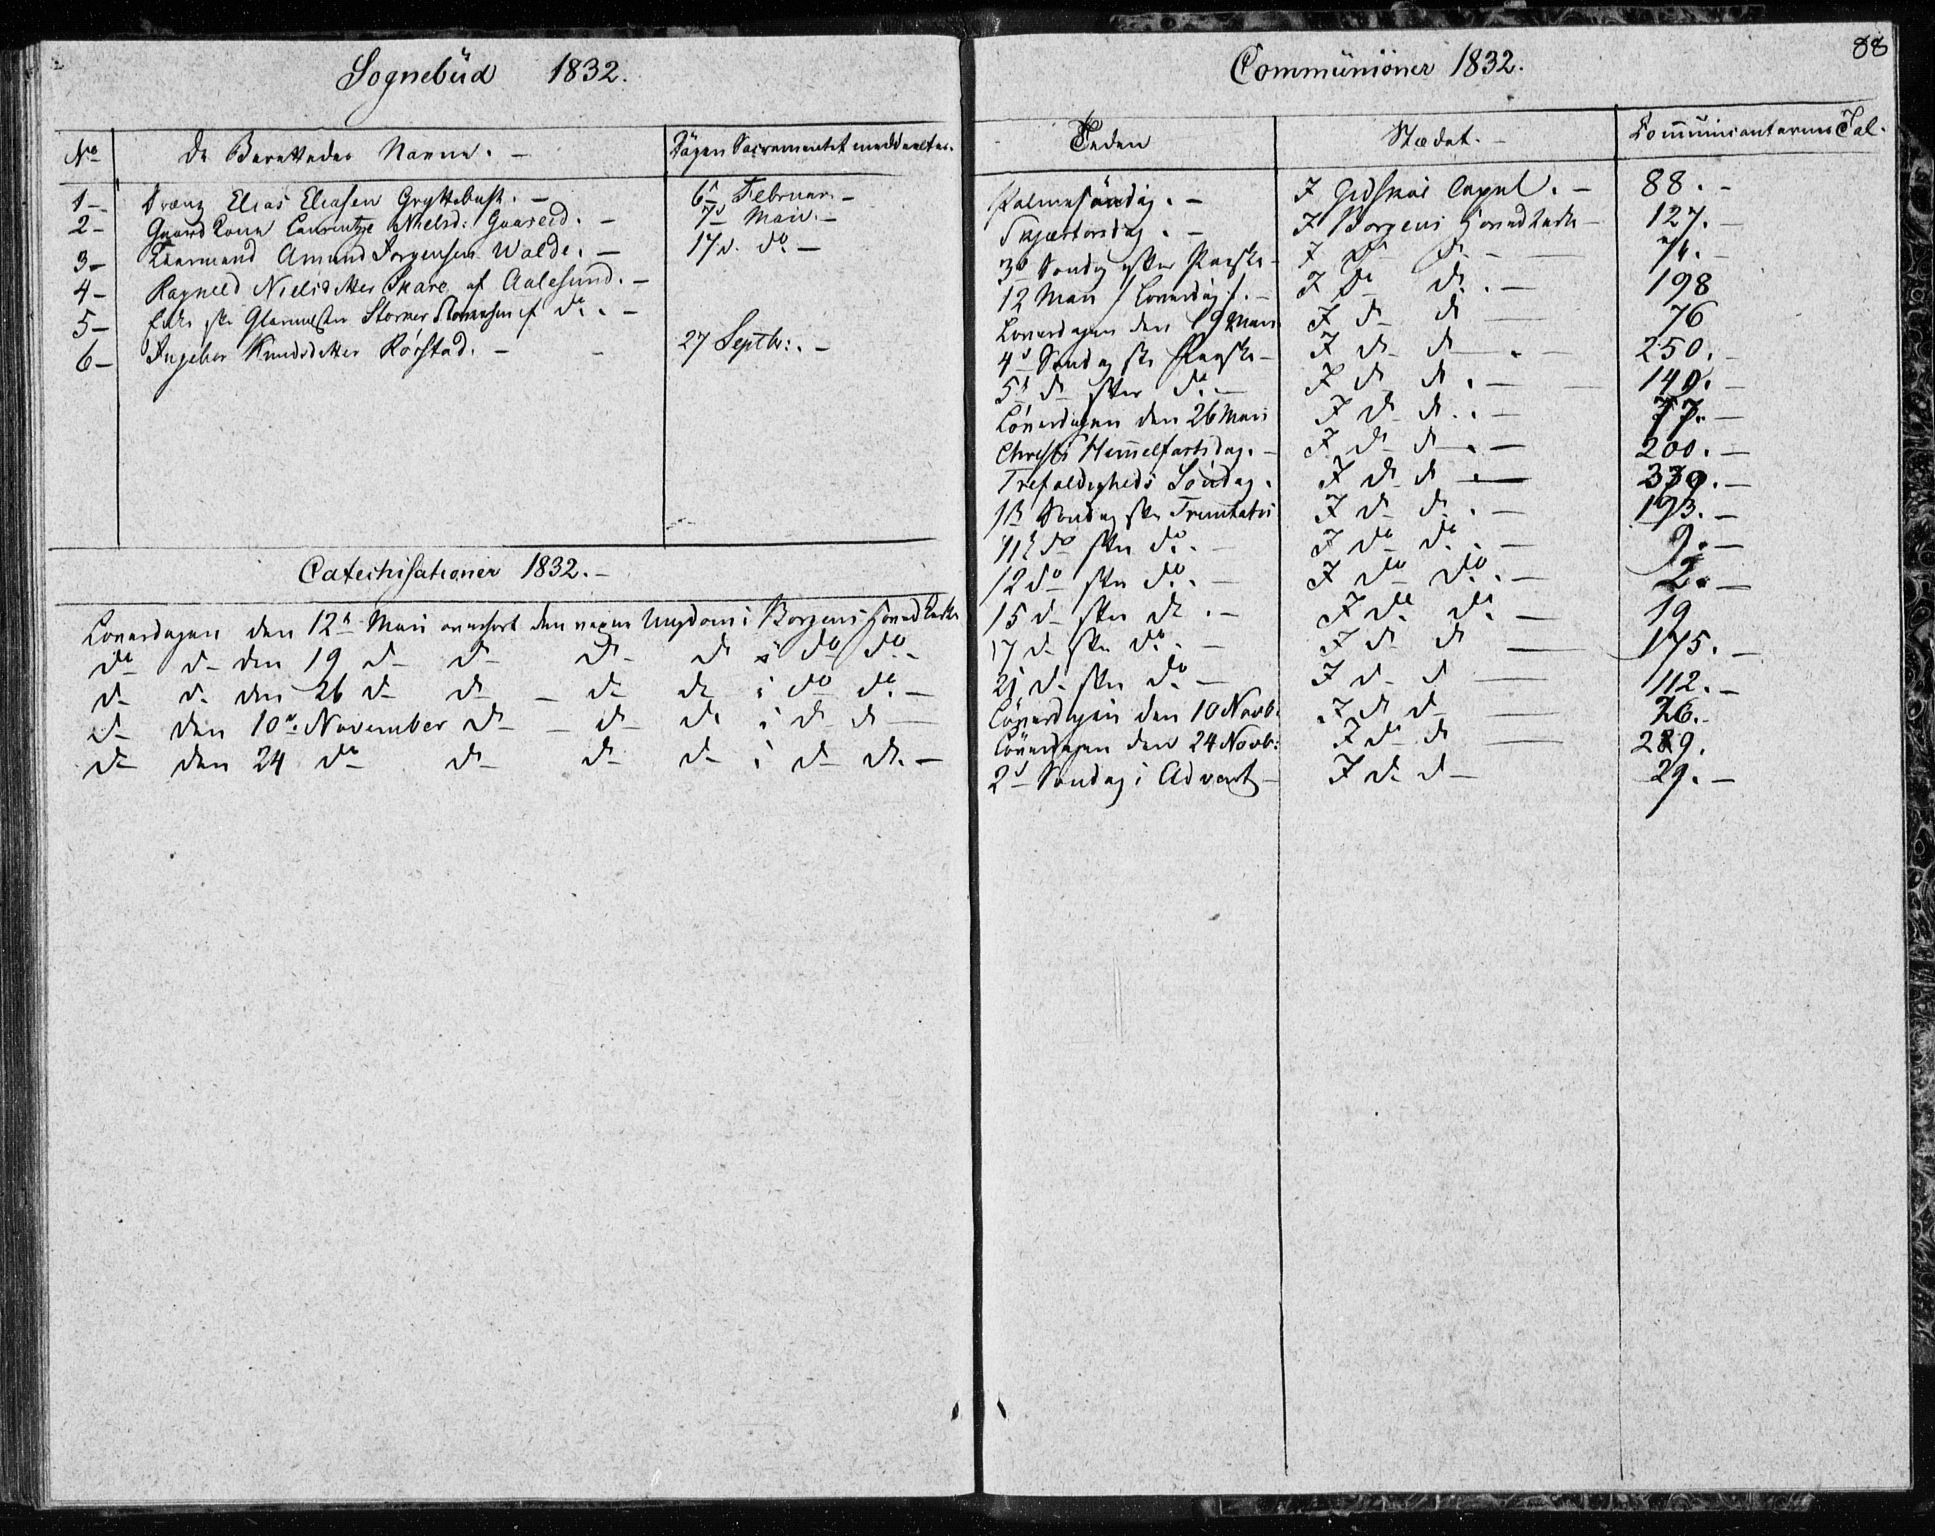 Sognebüd 1832.
No De Berettedes Navne. Dagen Sacramentet meddeeltes.
1 Dreng Elias Eliasen Gryttebust. 6te Februar.
2 Gaard Kone Laurentze Nielsd: Gaaseid. 7de Maii.
3 Kaarmand Amund Jørgensen Walde. 17 d. do
4 Ragnild Nielsdatter Skare af Aalesund.
5 Enke efter Glarmester Stormer af do.
6 Ingebor Knudsdatter Rørstad. 27 Septbr:.
Catechisationer 1832.
Løverdagen den 12te Maii overhørt den nxxx Ungdom i Borgens Hovedkirke
do do den 19 do do do do i do do.
do do den 26 do do do do i do do.
do den 10de November do do do i do do
do den 24 do do do do i do do.
88
Communioner 1832.
Tiden Stædet. Communicanternes Tal.
Palmesöndag. I Gidskøe Capel. 88.
Skjærtorsdag. I Borgens Hovedkirke 127.
3de Søndag efter Paaske I do do. 74.
12 Maii /Løverdag/. I do do. 198
Løverdagen den 19 Maii I do do 76
4de Søndag efter Paaske I do do 250.
5te do efter do. I do do. 140.
Løverdagen den 26 Maii I do do. 77.
Christi Himmelfartsdag. I do do. 200.
Trefoldigheds Søndag. I do do. 330.
1ste Søndag efter Trinitatis I do do. 193.
11te do efter do. I do do. 9.
12 do efter do. I do do. 2.
15 do efter do. I do do. 19
17 do efter do. I do do 175.
21 do efter do I do do 112.
Løverdagen den 10 Novb. I do do 26.
Løverdagen den 24 Novb: I do do 289.
2den Søndag i Advent I do do 29.